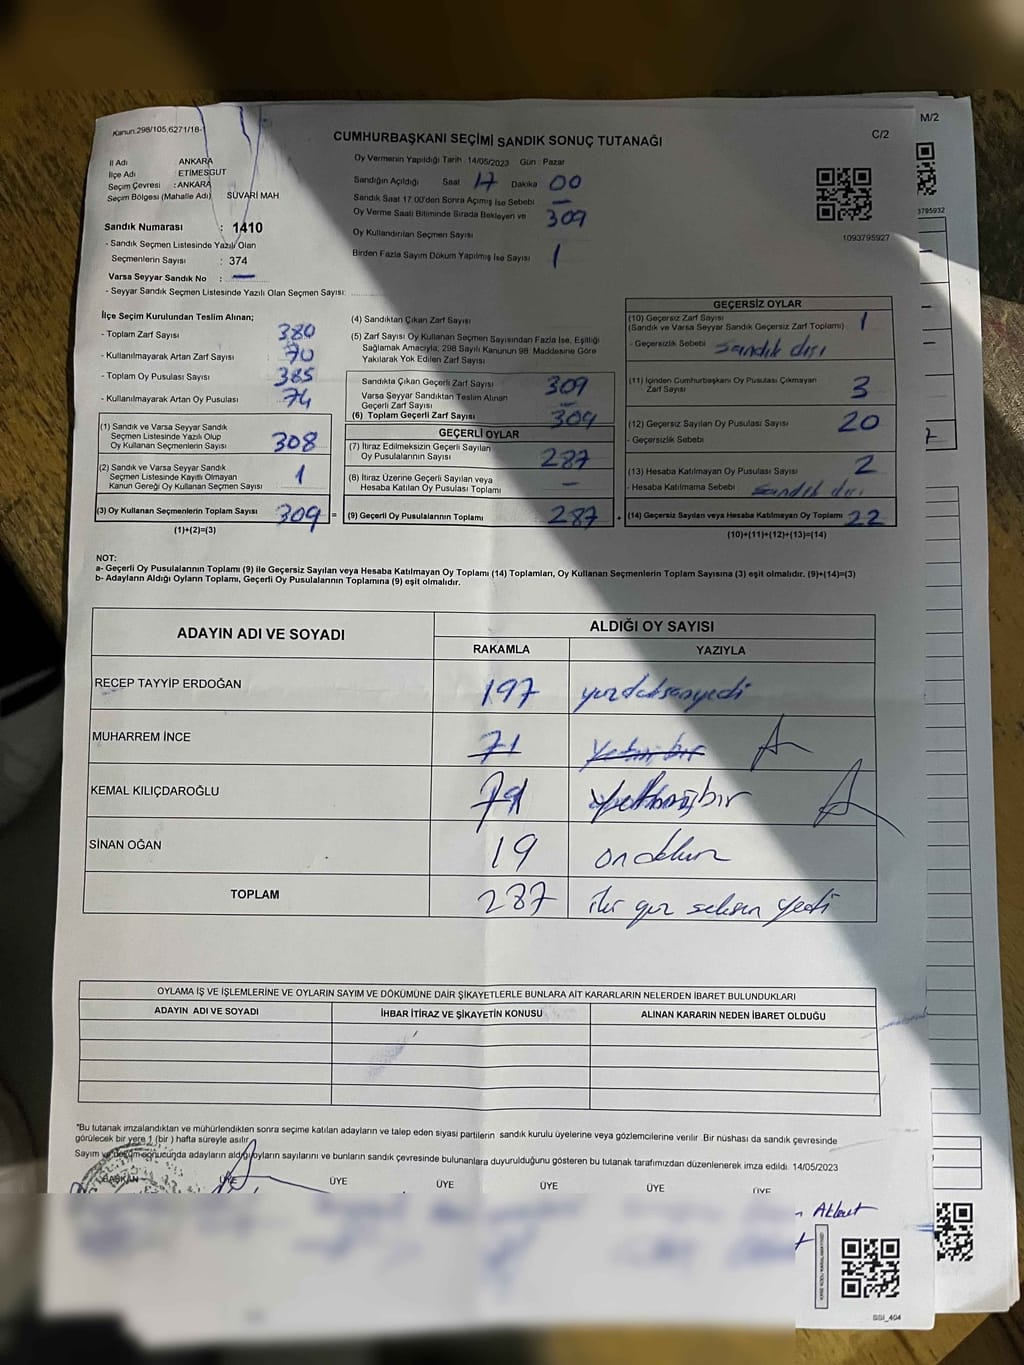 M/2
Kanun.298/105,6271/18-
CUMHURBAŞKANI SEÇİMİ SANDIK SONUÇ TUTANAĞI
C/2
İl Adı ANKARA
İlçe Adı ETİMESGUT
Seçim Çevresi : ANKARA
Seçim Bölgesi (Mahalle Adı) SÜVARİ MAH
Sandık Numarası : 1410
- Sandık Seçmen Listesinde Yazılı Olan
Seçmenlerin Sayısı : 374
Varsa Seyyar Sandık No :
- Seyyar Sandık Seçmen Listesinde Yazılı Olan Seçmen Sayısı:
Oy Vermenin Yapıldığı Tarih 14/05/2023 Gün Pazar
Sandığın Açıldığı Saat 17 Dakika 00
Sandık Saat 17.00'den Sonra Açımış İse Sebebi
Oy Verme Saati Bitiminde Sırada Bekleyen ve
Oy Kullandırılan Seçmen Sayısı 309
Birden Fazla Sayım Döküm Yapılmış İse Sayısı 1
1093795927
3795932
İlçe Seçim Kurulundan Teslim Alınan;
- Toplam Zarf Sayısı 380
- Kullanılmayarak Artan Zarf Sayısı 70
- Toplam Oy Pusulası Sayısı 385
- Kullanılmayarak Artan Oy Pusulası 74
(1) Sandık ve Varsa Seyyar Sandık
Seçmen Listesinde Yazılı Olup
Oy Kullanan Seçmenlerin Sayısı 308
(2) Sandık ve Varsa Seyyar Sandık
Seçmen Listesinde Kayıtlı Olmayan
Kanun Gereği Oy Kullanan Seçmen Sayısı 1
(3) Oy Kullanan Seçmenlerin Toplam Sayısı 309 =
(1)+(2)=(3)
(4) Sandıktan Çıkan Zarf Sayısı
(5) Zarf Sayısı Oy Kullanan Seçmen Sayısından Fazla İse, Eşitliği
Sağlamak Amacıyla, 298 Sayılı Kanunun 98. Maddesine Göre
Yakılarak Yok Edilen Zarf Sayısı
Sandıkta Çıkan Geçerli Zarf Sayısı 309
Varsa Seyyar Sandıktan Teslim Alınan
Geçerli Zarf Sayısı
(6) Toplam Geçerli Zarf Sayısı 309
GEÇERLİ OYLAR
(7) İtiraz Edilmeksizin Geçerli Sayılan
Oy Pusulalarının Sayısı 287
(8) İtiraz Üzerine Geçerli Sayılan veya
Hesaba Katılan Oy Pusulası Toplamı
(9) Geçerli Oy Pusulalarının Toplamı 287 +
GEÇERSİZ OYLAR
(10) Geçersiz Zarf Sayısı
(Sandık ve Varsa Seyyar Sandık Geçersiz Zarf Toplamı) 1
- Geçersizlik Sebebi Sandık dışı
(11) İçinden Cumhurbaşkanı Oy Pusulası Çıkmayan
Zarf Sayısı 3
(12) Geçersiz Sayılan Oy Pusulası Sayısı 20
- Geçersizlik Sebebi
(13) Hesaba Katılmayan Oy Pusulası Sayısı 2
- Hesaba Katılmama Sebebi Sandık dışı
(14) Geçersiz Sayılan veya Hesaba Katılmayan Oy Toplamı 22
(10)+(11)+(12)+(13)=(14)
NOT:
a- Geçerli Oy Pusulalarının Toplamı (9) ile Geçersiz Sayılan veya Hesaba Katılmayan Oy Toplamı (14) Toplamları, Oy Kullanan Seçmenlerin Toplam Sayısına (3) eşit olmalıdır. (9)+(14)=(3)
b- Adayların Aldığı Oyların Toplamı, Geçerli Oy Pusulalarının Toplamına (9) eşit olmalıdır.
ADAYIN ADI VE SOYADI
ALDIĞI OY SAYISI
RAKAMLA YAZIYLA
RECEP TAYYİP ERDOĞAN 197 yüzdoksanyedi
MUHARREM İNCE 71 Yetmişbir
KEMAL KILIÇDAROĞLU 71 yetmişbir
SİNAN OĞAN 19 ondokuz
TOPLAM 287 iki yüz seksen yedi
OYLAMA İŞ VE İŞLEMLERİNE VE OYLARIN SAYIM VE DÖKÜMÜNE DAİR ŞİKAYETLERLE BUNLARA AİT KARARLARIN NELERDEN İBARET BULUNDUKLARI
ADAYIN ADI VE SOYADI İHBAR İTİRAZ VE ŞİKAYETİN KONUSU ALINAN KARARIN NEDEN İBARET OLDUĞU
"Bu tutanak imzalandıktan ve mühürlendikten sonra seçime katılan adayların ve talep eden siyasi partilerin sandık kurulu üyelerine veya gözlemcilerine verilir .Bir nüshası da sandık çevresinde
görülecek bir yere 1 (bir ) hafta süreyle asılır.
Sayım ve döküm sonucunda adayların aldığı oyların sayılarını ve bunların sandık çevresinde bulunanlara duyurulduğunu gösteren bu tutanak tarafımızdan düzenlenerek imza edildi. 14/05/2023
BAŞKAN ÜYE ÜYE ÜYE ÜYE ÜYE ÜYE
SSİ_404